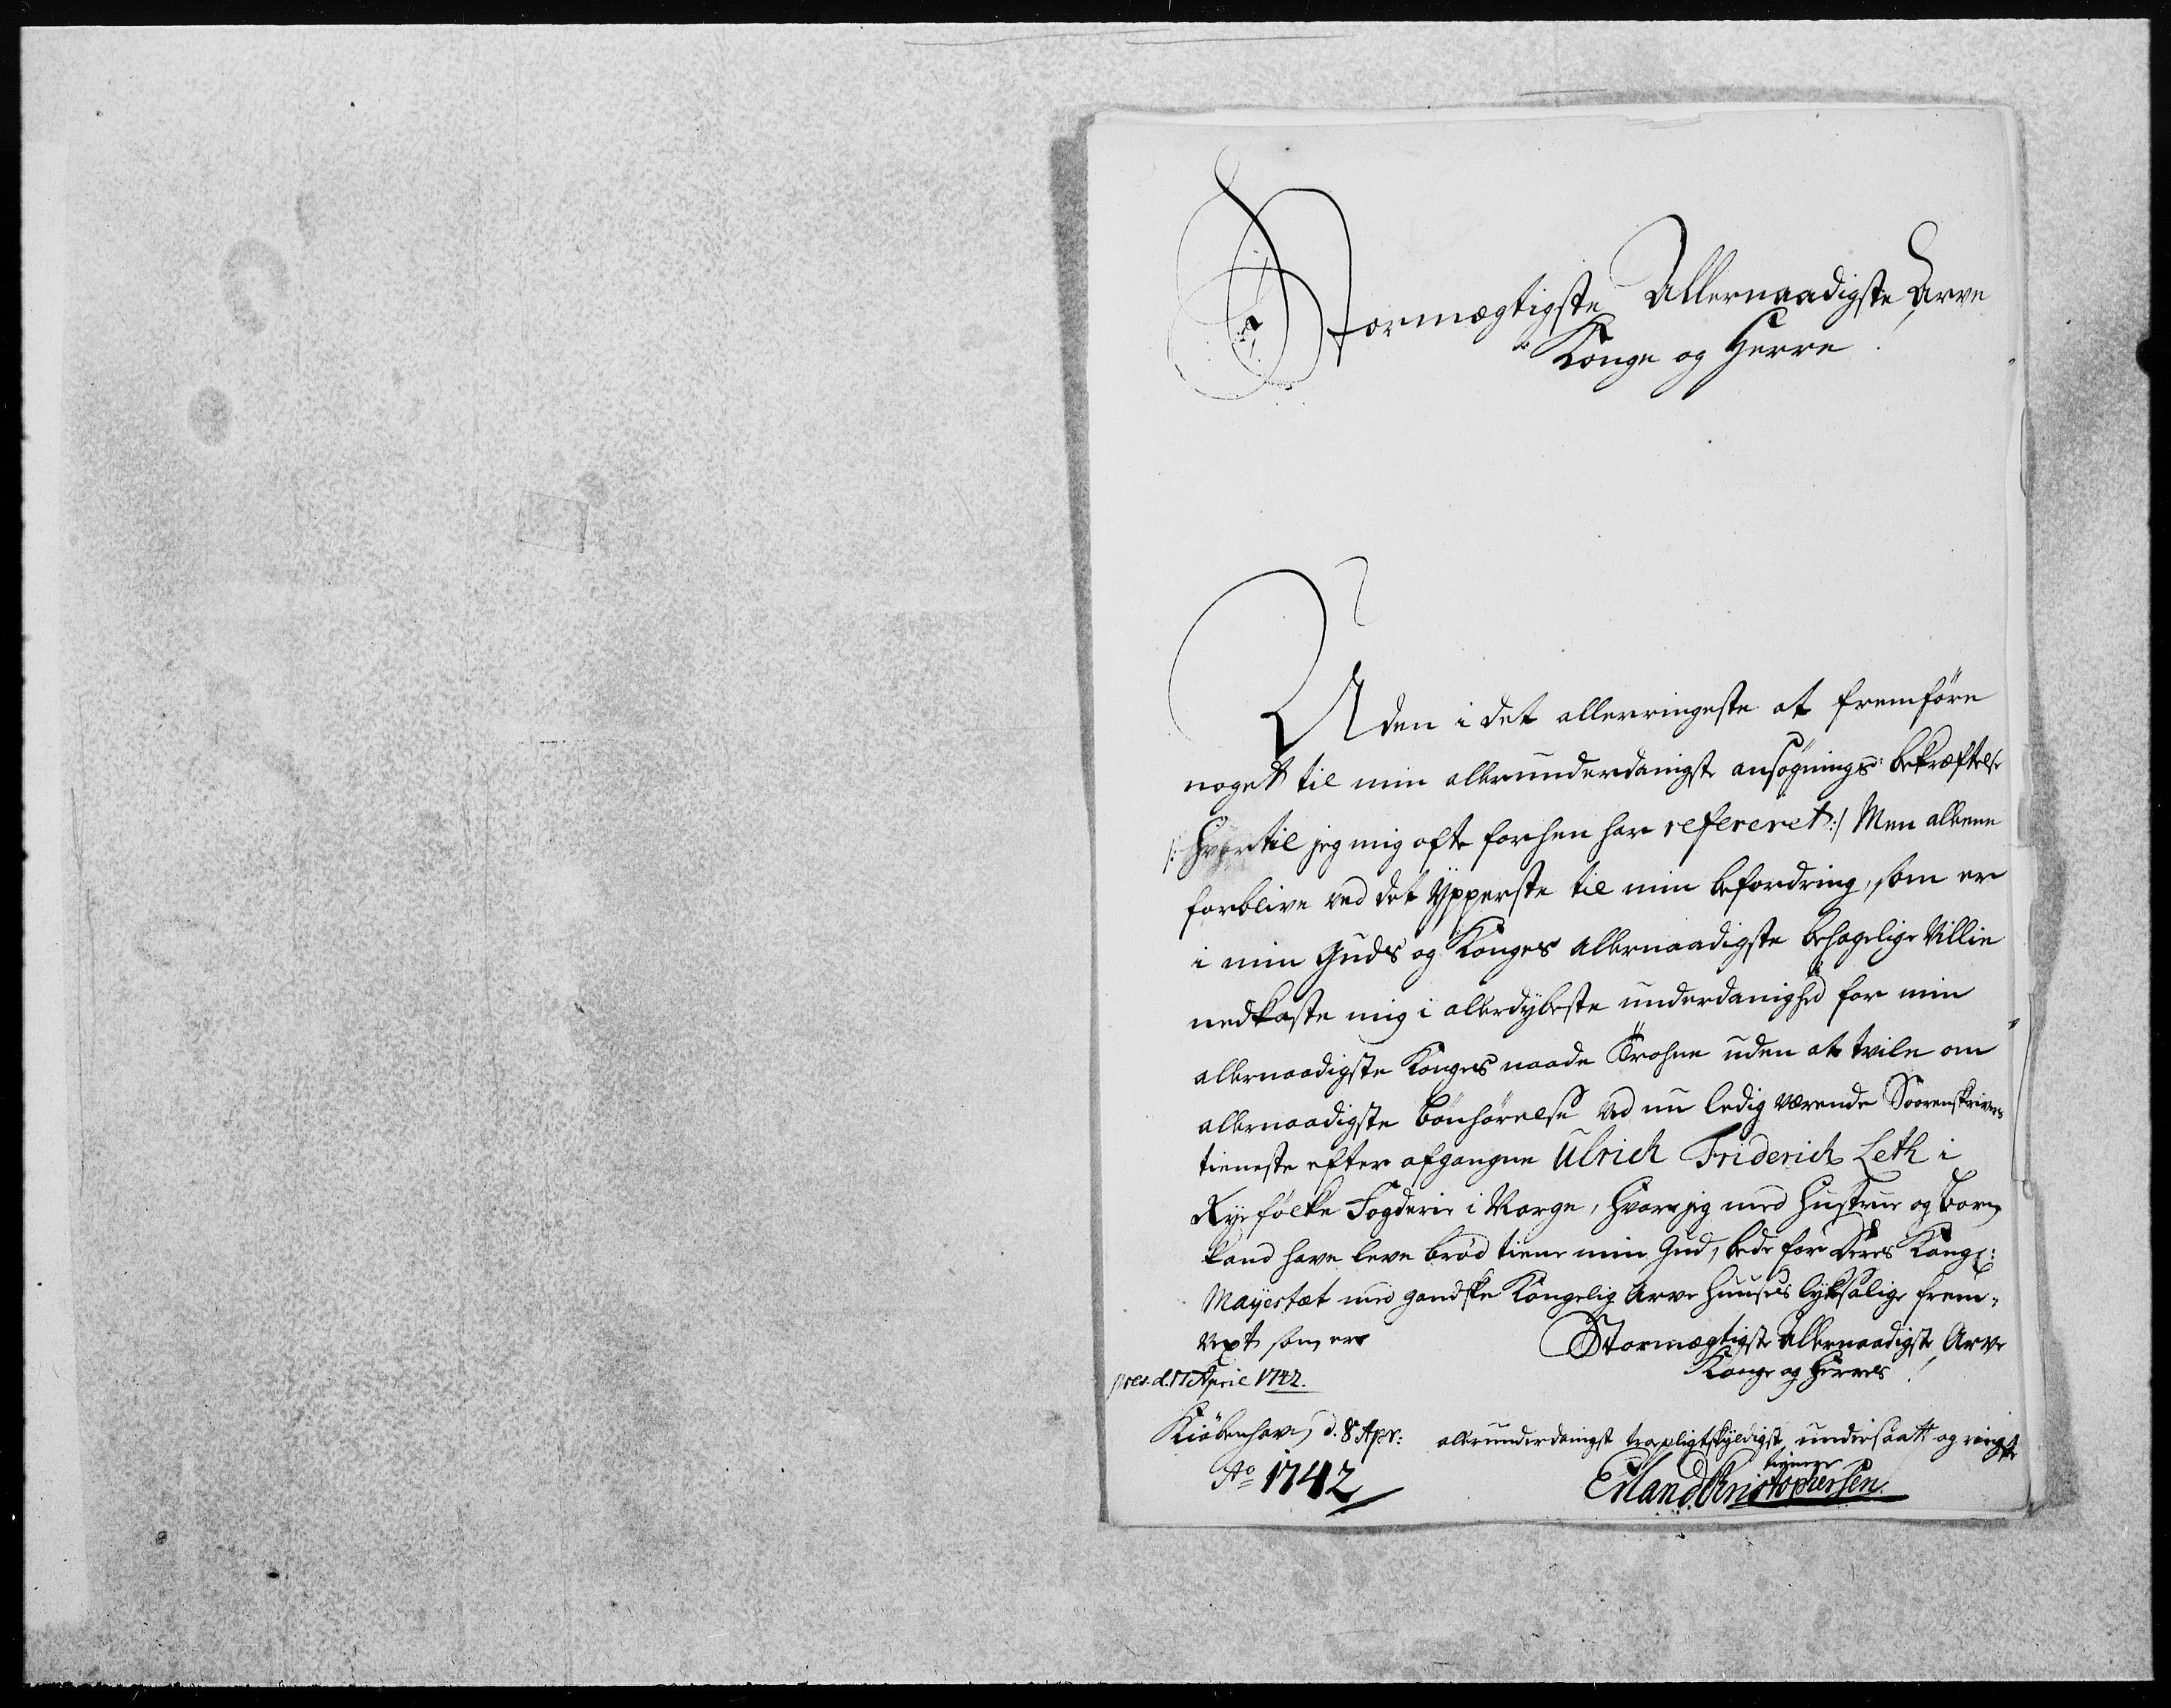 Stormægtigste Allernaadigste Arve
Konge og Herre
Uden i det allerringeste at fremføre
noget til min allerunderdanigste ansøgnings bekræftelse
/: hvortil jeg mig ofte forhen har refereret :/ Men allene
forblive ved det ÿpperste til min befordring, som er
i min Guds og Konges allernaadigste behagelige Villie
nedkaste mig i allerdÿbeste underdanighed for min
allernaadigste Konges naade Trohne uden at tvile om
allernaadigste bönhörelse ved nu ledig værende Soorenskrivers
tieneste efter afgangne Ulrich Friderich Leth i
Rÿefölke Fogderie i Norge, hvor jeg med Hustrue og Born
kand have leve bröd tiene min Gud, bede for Deres Kongl:
Mayestæt med gandske Kongelig Arve Huuses lÿksalige frem-
vext som er
Stormægtigste Allernaadigste Arve
Konge og Herres
præs. d. 17 April 1742.
Kiöbenhavn d. 8 Apr:
allerunderdanigst troepligtskÿldigste undersaatt og ringeste
tienere
Ao 1742
Erland Christophersen